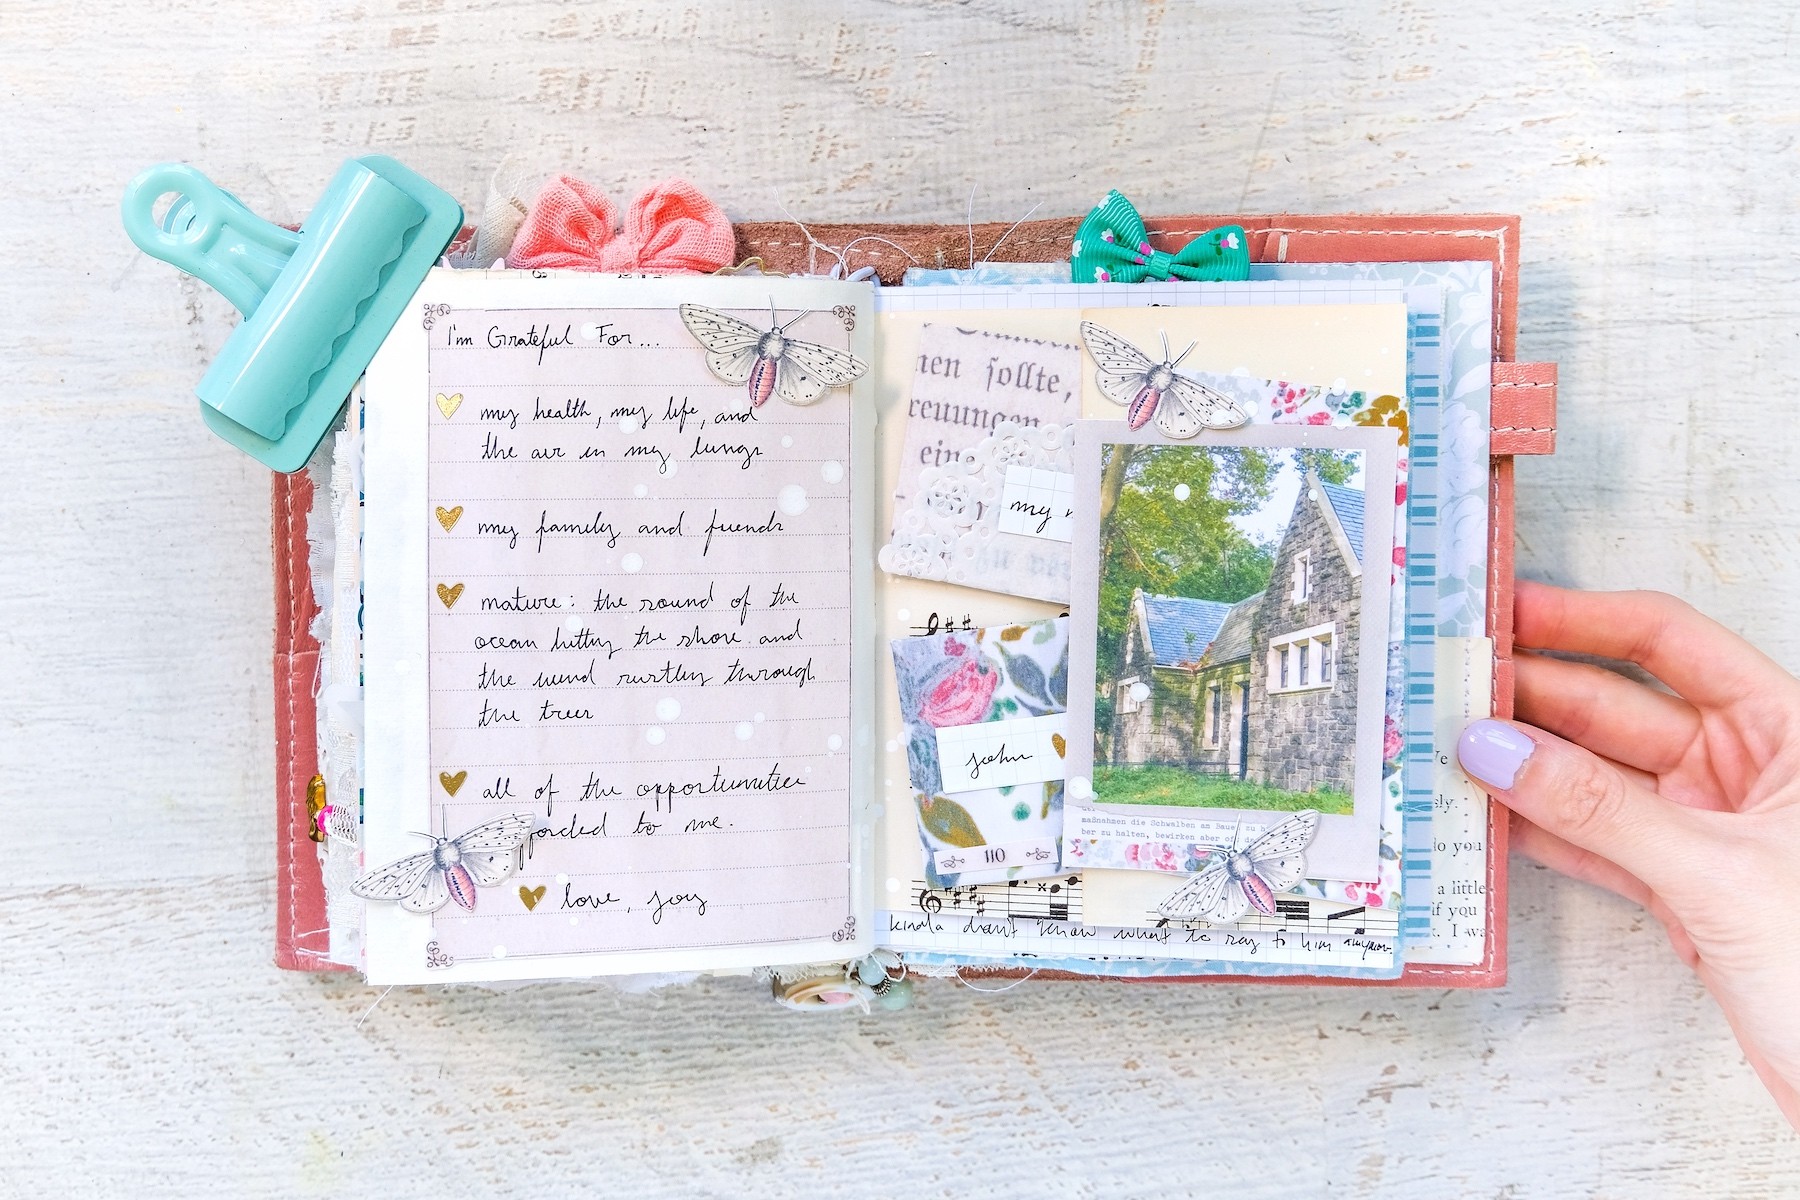 I'm Grateful For...
my health, my life, and
the air in my lungs
my family and friends
nature: the sound of the
ocean hitting the shore and
the wind rustling through
the trees
all of the opportunities
to me.
love, joy
nen sollte,
reuungen
eine
my
john
110
maßnahmen die Schwalben am Bauen zu
ber zu halten, bewirken aber oft
kinda didn't know what to say to him anymore.
do you
a little
if you